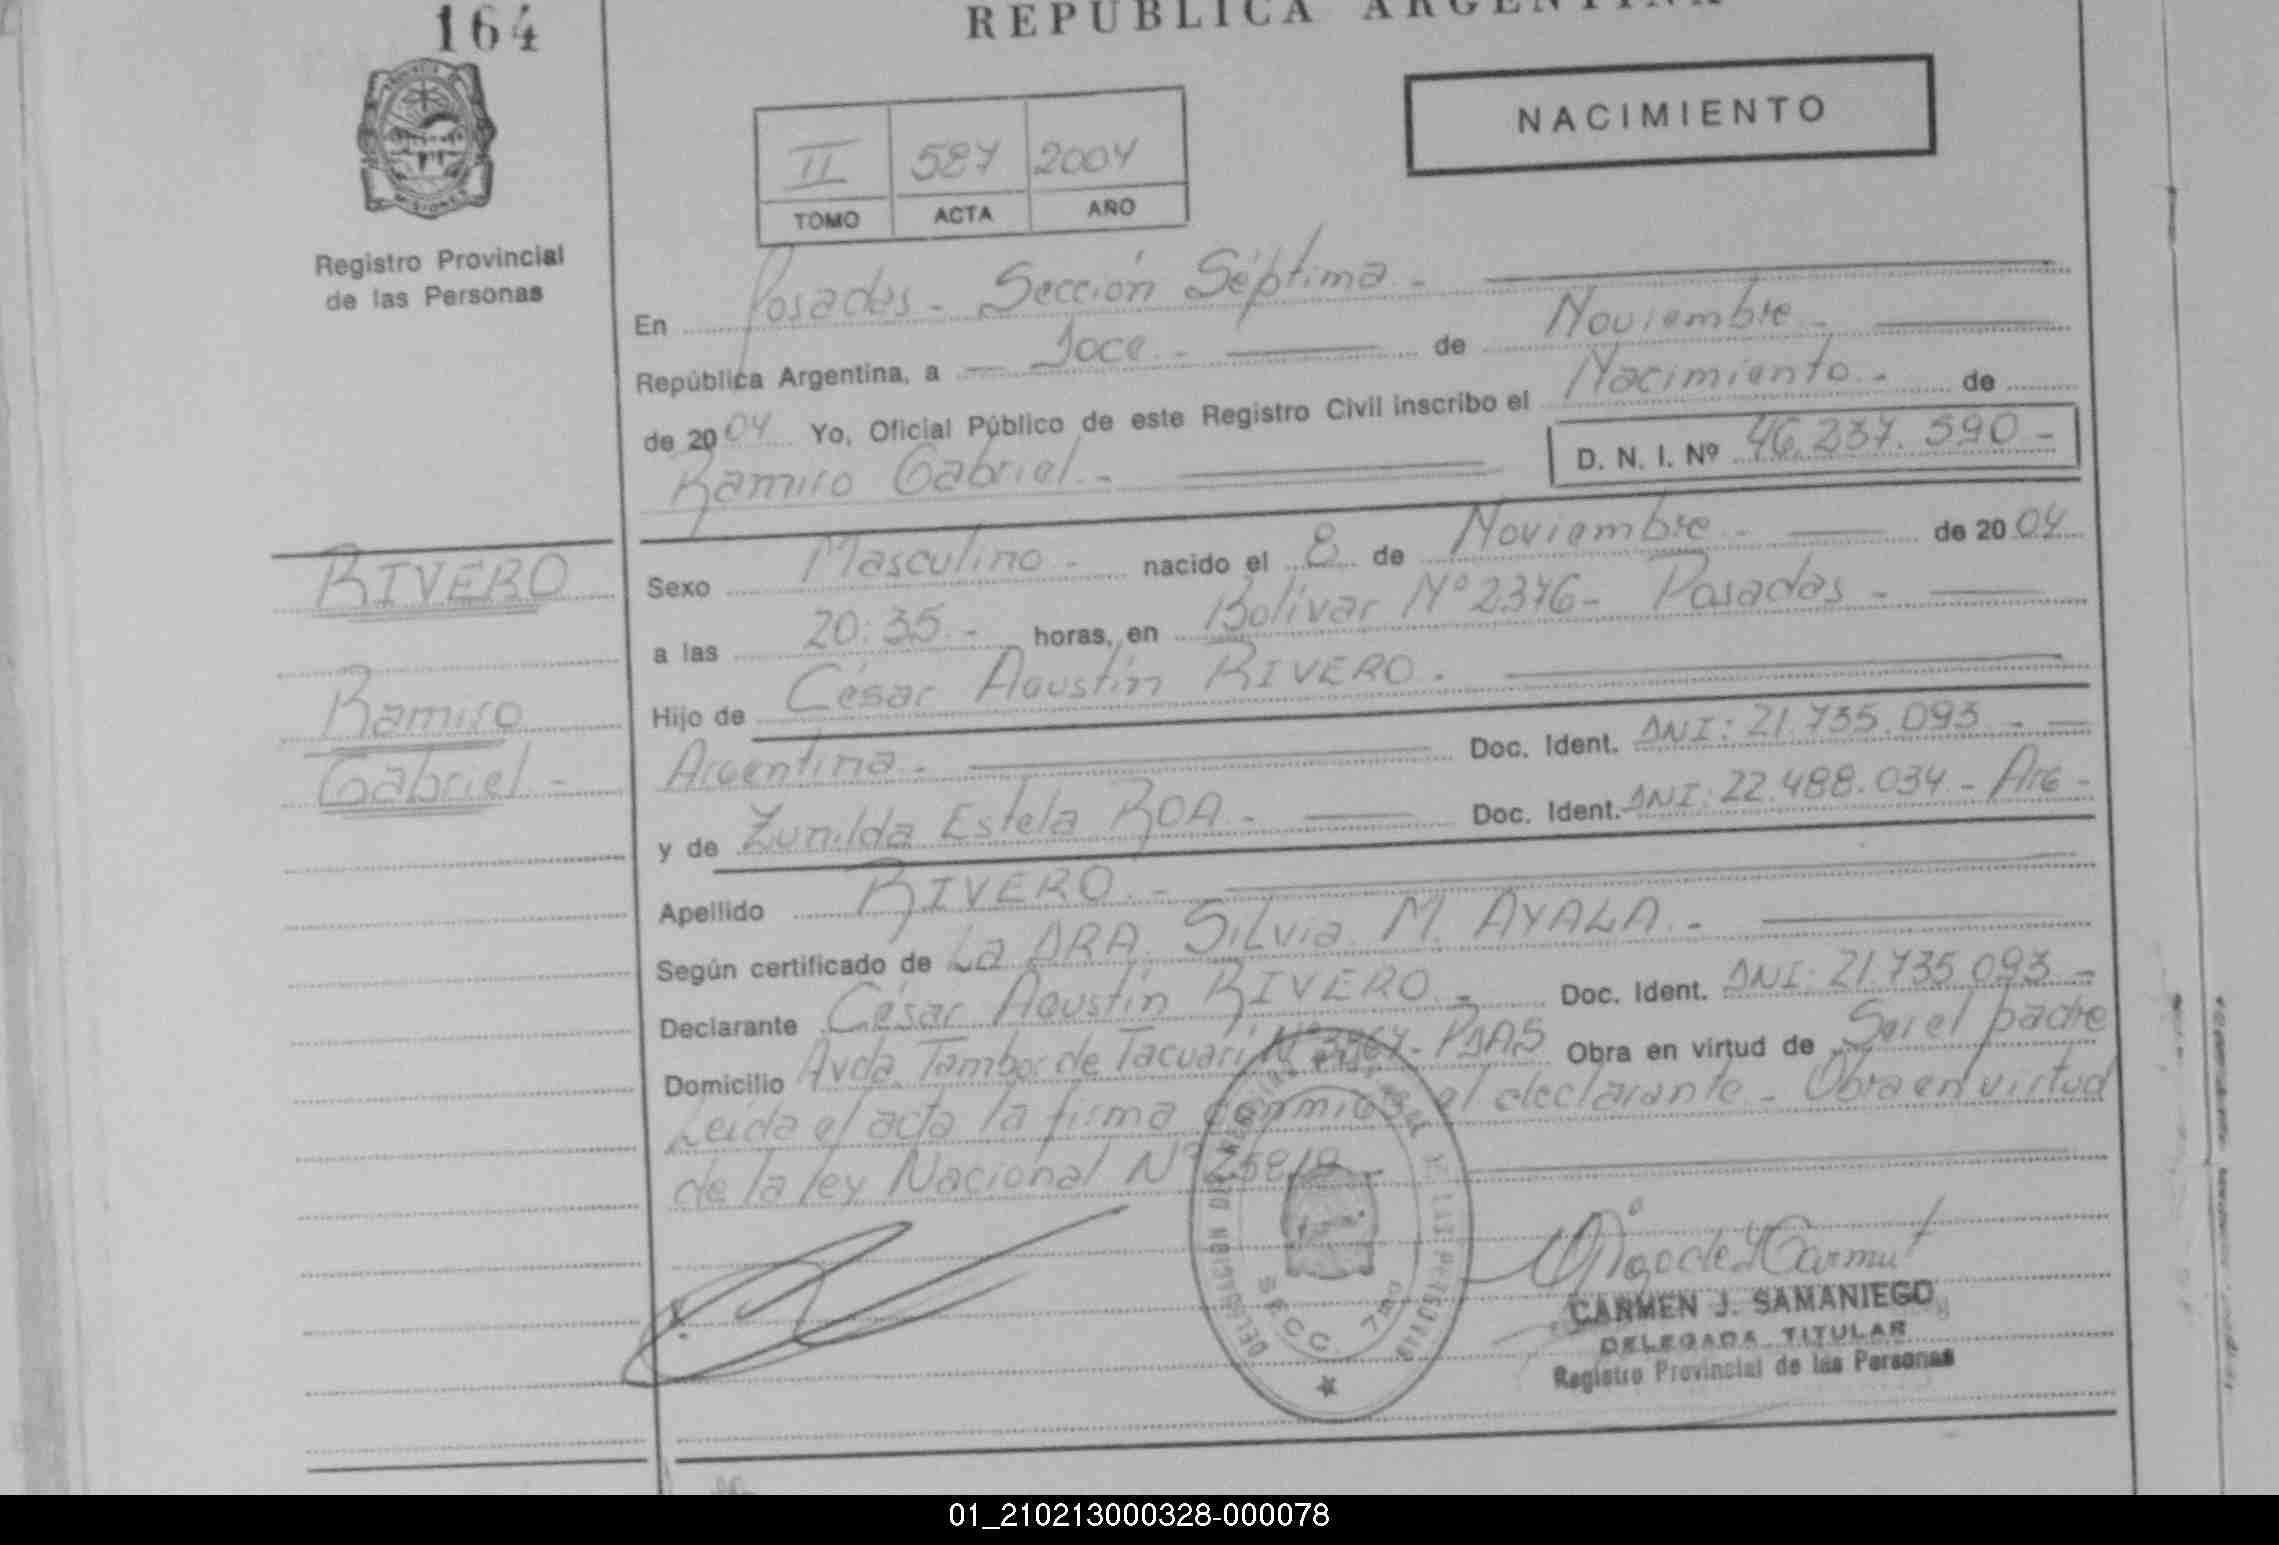 164
REPUBLICA ARGENTINA
NACIMIENTO
II 587 2004
TOMO ACTA AÑO
Registro Provincial
de las Personas
En Posadas - Sección Séptima -
República Argentina, a Doce - de Noviembre -
de 2004 Yo, Oficial Público de este Registro Civil inscribo el Nacimiento - de
Ramiro Gabriel - D. N. I. Nº 46.237.590 -
RIVERO
Ramiro
Gabriel -
Sexo Masculino - nacido el 8 de Noviembre - de 2004
a las 20:35 - horas, en Bolívar Nº 2376 - Posadas -
Hijo de César Agustín RIVERO.
Argentina - Doc. Ident. DNI: 21.735.093 -
y de Zunilda Estela ROA - Doc. Ident. DNI: 22.488.034 - Arg -
Apellido RIVERO -
Según certificado de La DRA. Silvia M. AYALA -
Declarante César Agustín RIVERO - Doc. Ident. DNI: 21.735.093 -
Domicilio Avda. Tambor de Tacuarí Nº - PDAS Obra en virtud de Ser el padre
Leída el acta la firma conmigo el declarante - Obra en virtud
de la ley Nacional Nº 25818
SECC. 7ma
CARMEN J. SAMANIEGO
DELEGADA TITULAR
Registro Provincial de las Personas
01_210213000328-000078